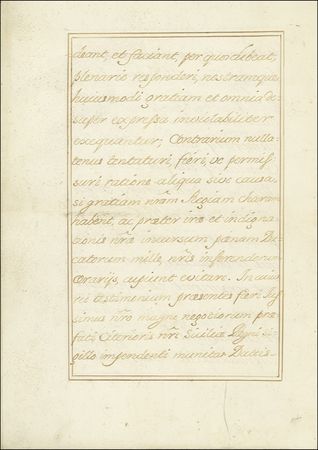 deant, et faciant, per quos debeat,
plenarie responderi, nostramque
huiusmodi gratiam et omnia de-
super expressa inviolabiliter
exequantur; Contrarium nulla-
tenus tentaturi, fieri, ve permis-
suri ratione aliqua sive causa,
si gratiam nr̃am Regiam charam
habent, ac præter iræ et indigna-
tionis nr̃æ incursum pœnam Du-
catorum mille, nr̃is inferendorum
Ærarijs, cupiunt evitare. In cuius
rei testimonium præsentes fieri Jus-
simus nr̃o magno negotiorum præ-
fati Citerioris nr̃i Siciliæ Regni si-
gillo impendenti munitas Dattis-